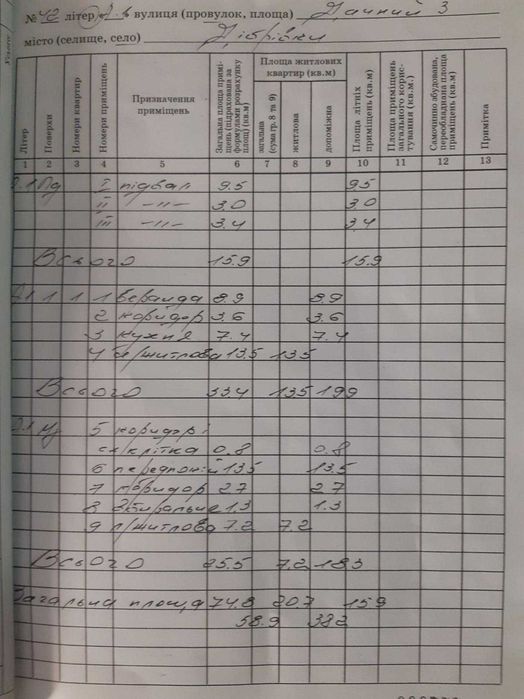 № 42 літер А-1 вулиця (провулок, площа) Дачний 3
місто (селище, село) Дібрівки
Літер
Поверхи
Номери квартир
Номери приміщень
Призначення приміщень
Загальна площа приміщень (підрахована за формулами розрахунку площ) (кв.м)
Площа житлових квартир (кв.м)
загальна (сума гр. 8 та 9)
житлова
допоміжна
Площа літніх приміщень (кв.м)
Площа приміщень загального користування (кв.м.)
Самочинно збудована, переобладнана площа приміщень (кв.м)
Примітка
1 2 3 4 5 6 7 8 9 10 11 12 13
Пд I підвал 9.5 9.5
II -"- 3.0 3.0
III -"- 3.4 3.4
Всього 15.9 15.9
1 1 1 веранда 8.9 8.9
2 коридор 3.6 3.6
3 кухня 7.4 7.4
4 житлова 13.5 13.5
Всього 33.4 13.5 19.9
5 коридор і
сх/клітка 0.8 0.8
6 передпокій 13.5 13.5
7 коридор 2.7 2.7
8 1.3 1.3
9 житлова 7.2 7.2
Всього 25.5 7.2 18.3
Загальна площа 74.8 20.7 15.9
58.9 38.2